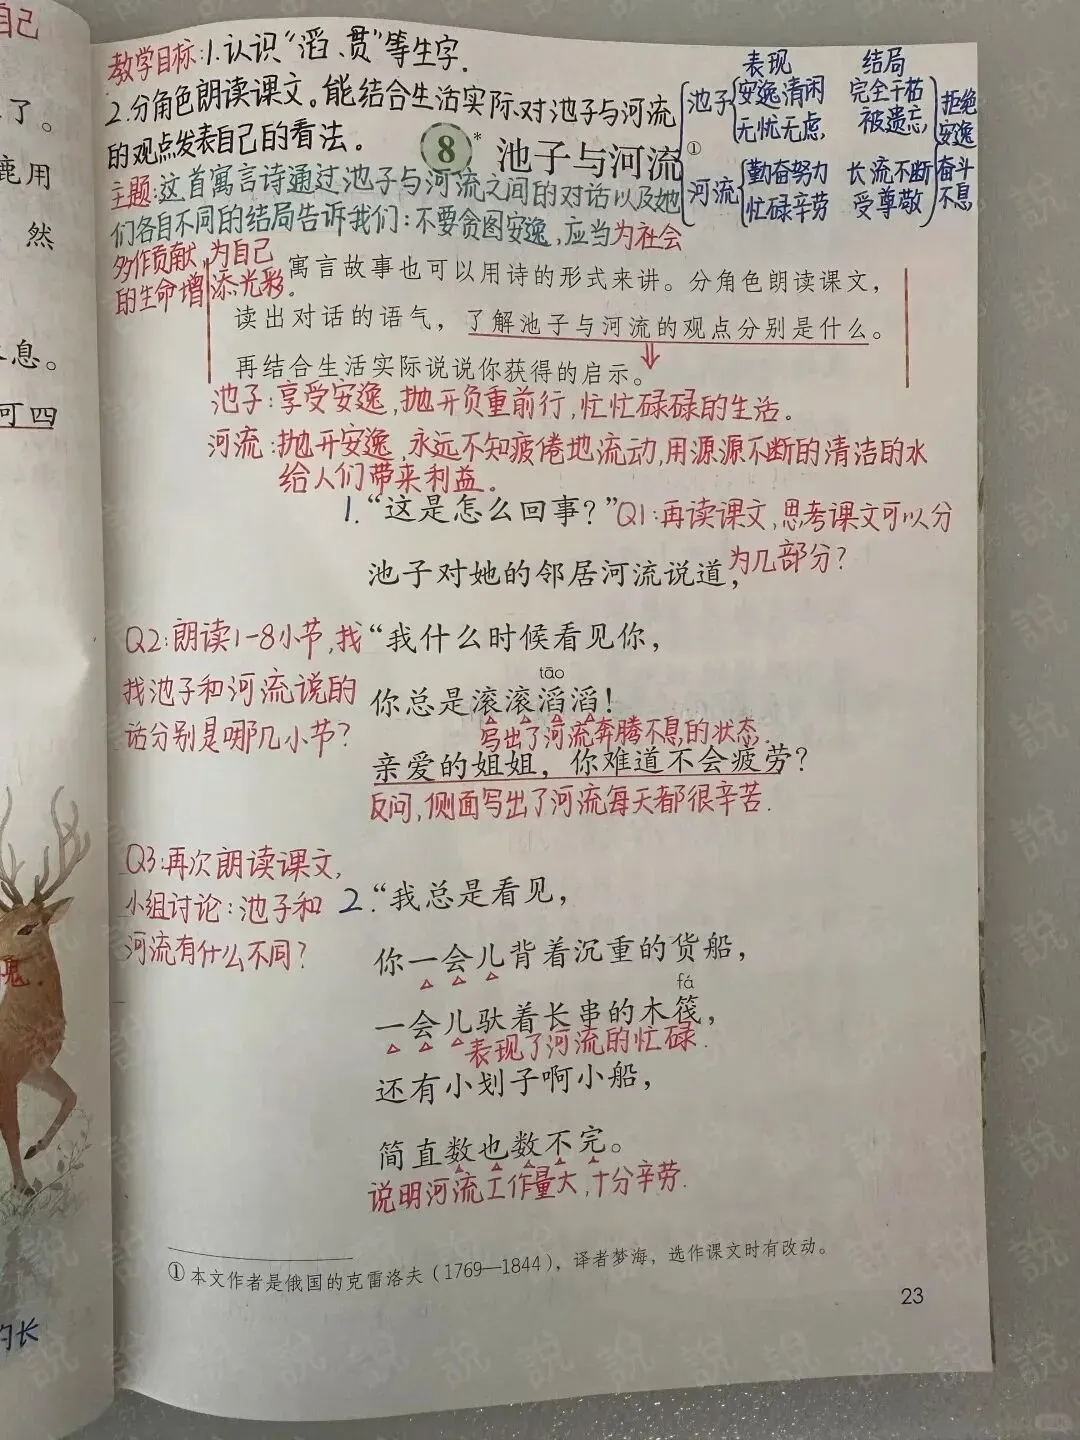 自己
了。
鹿用
然
息。
可四
的长
教学目标:1.认识“滔、贯”等生字.
2.分角色朗读课文。能结合生活实际对池子与河流
的观点发表自己的看法。
主题:这首寓言诗通过池子与河流之间的对话以及她
们各自不同的结局告诉我们:不要贪图安逸,应当为社会
多作贡献,为自己
的生命增添光彩.
表现 结局
池子 安逸清闲 完全干枯
无忧无虑, 被遗忘
拒绝
安逸
河流 勤奋努力 长流不断
忙碌辛劳 受尊敬
奋斗
不息
8* 池子与河流①
寓言故事也可以用诗的形式来讲。分角色朗读课文，
读出对话的语气，了解池子与河流的观点分别是什么。
再结合生活实际说说你获得的启示。
池子:享受安逸,抛开负重前行,忙忙碌碌的生活。
河流:抛开安逸,永远不知疲倦地流动,用源源不断的清洁的水
给人们带来利益。
1.“这是怎么回事？”
Q1:再读课文,思考课文可以分
为几部分?
池子对她的邻居河流说道，
Q2:朗读1-8小节,找
找池子和河流说的
话分别是哪几小节?
“我什么时候看见你，
tāo
你总是滚滚滔滔！
写出了河流奔腾不息的状态.
亲爱的姐姐，你难道不会疲劳？
反问,侧面写出了河流每天都很辛苦.
Q3:再次朗读课文,
小组讨论:池子和
河流有什么不同?
2.“我总是看见，
你一会儿背着沉重的货船，
fá
一会儿驮着长串的木筏，
表现了河流的忙碌.
还有小划子啊小船，
简直数也数不完。
说明河流工作量大,十分辛劳.
①本文作者是俄国的克雷洛夫（1769—1844），译者梦海，选作课文时有改动。
23